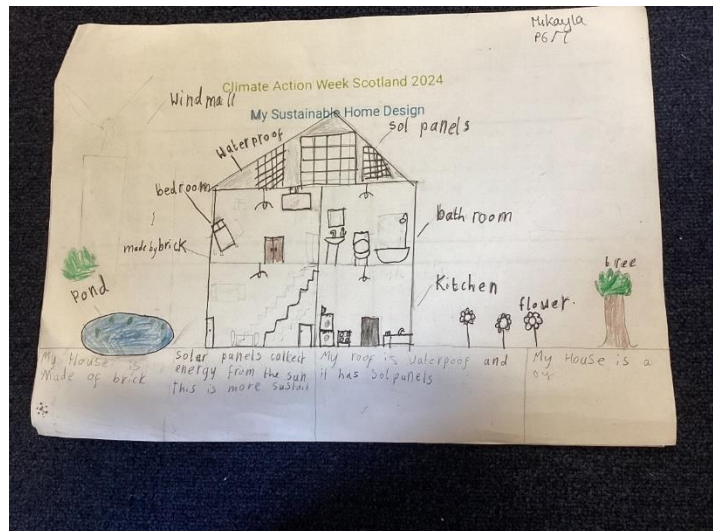 Mikayla
P6/7
Climate Action Week Scotland 2024
My Sustainable Home Design
Windmall
Waterproof
Sol panels
bedroom
bath room
made by brick
Kitchen
Pond
flower.
tree
My House is
Made of brick
Solar panels collect
energy from the sun
this is more sustai
My roof is waterpoof and
it has solpanels
My House is a